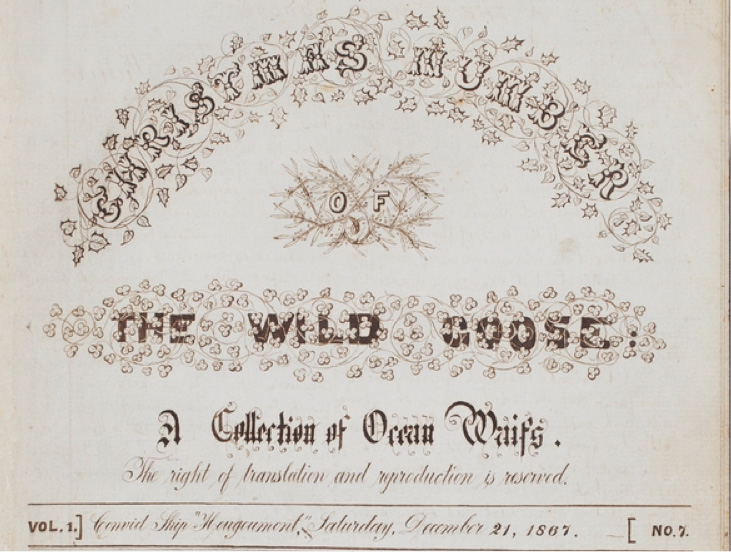 CHRISTMAS NUMBER
OF
THE WILD GOOSE:
A Collection of Ocean Waifs.
The right of translation and reproduction is reserved.
VOL. 1.] Convict Ship "Hougoumont," Saturday, December 21, 1867. [ NO. 7.